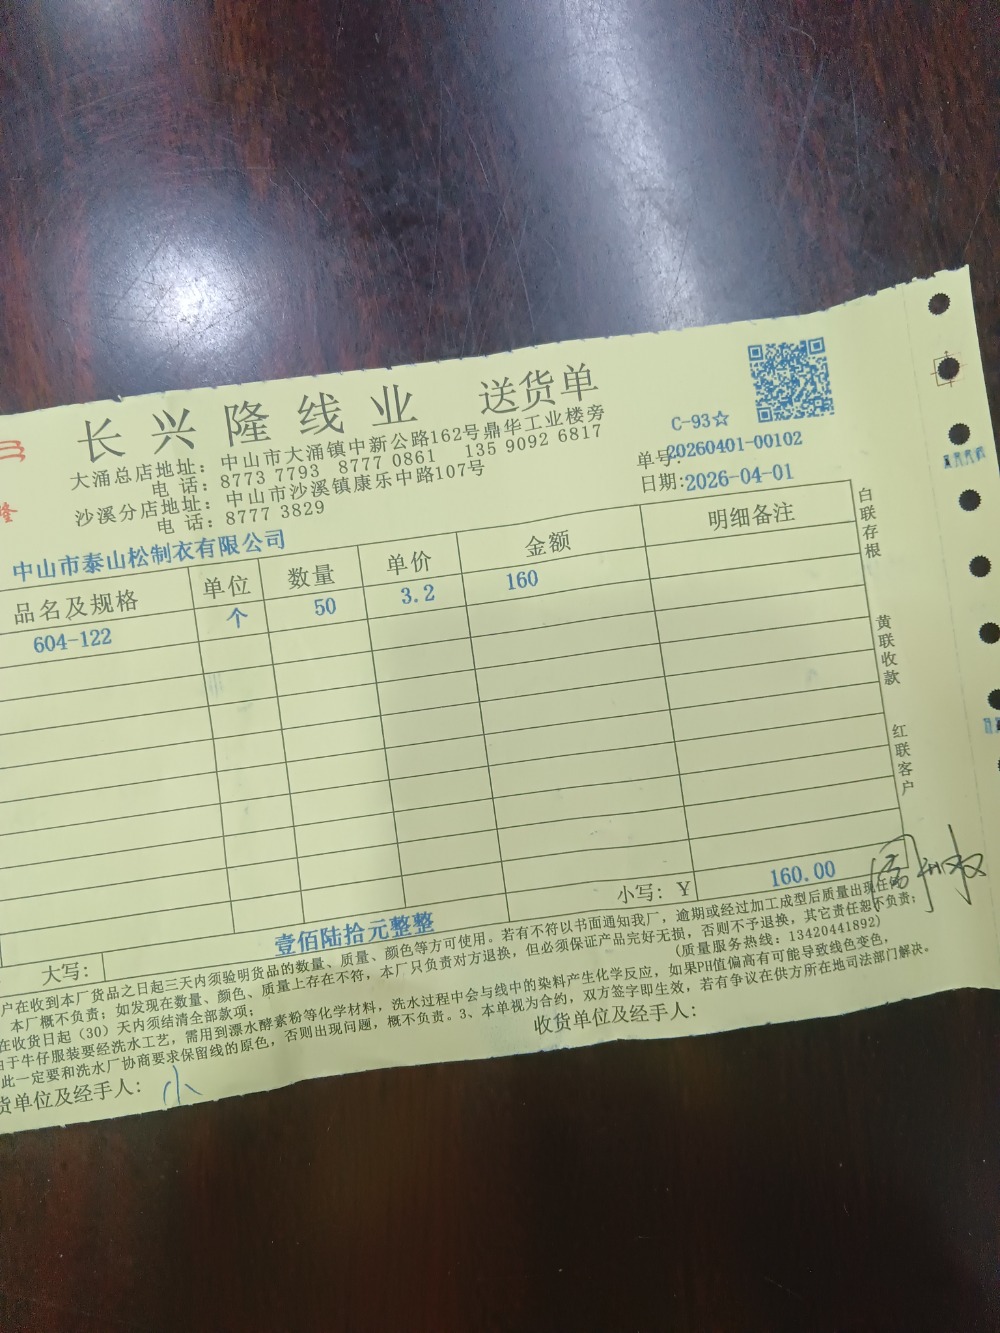 长兴隆线业 送货单
大涌总店地址：中山市大涌镇中新公路162号鼎华工业楼旁
电 话：8773 7793 8777 0861 135 9092 6817
沙溪分店地址：中山市沙溪镇康乐中路107号
电 话：8777 3829
C-93☆
单号:20260401-00102
日期:2026-04-01
隆
中山市泰山松制衣有限公司
品名及规格 单位 数量 单价 金额 明细备注
604-122 个 50 3.2 160
白联存根
黄联收款
红联客户
小写：Y 160.00
大写： 壹佰陆拾元整整
户在收到本厂货品之日起三天内须验明货品的数量、质量、颜色等方可使用。若有不符以书面通知我厂，逾期或经过加工成型后质量出现任何
本厂概不负责；如发现在数量、颜色、质量上存在不符，本厂只负责对方退换，但必须保证产品完好无损，否则不予退换，其它责任恕不负责；
在收货日起（30）天内须结清全部款项； (质量服务热线：13420441892)
由于牛仔服装要经洗水工艺，需用到漂水酵素粉等化学材料，洗水过程中会与线中的染料产生化学反应，如果PH值偏高有可能导致线色变色，
此一定要和洗水厂协商要求保留线的原色，否则出现问题，概不负责。3、本单视为合约，双方签字即生效，若有争议在供方所在地司法部门解决。
货单位及经手人： 小
收货单位及经手人：